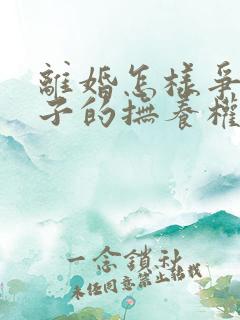 離婚怎樣爭
子的撫養權
一念鎖秋
未經同意禁止轉載